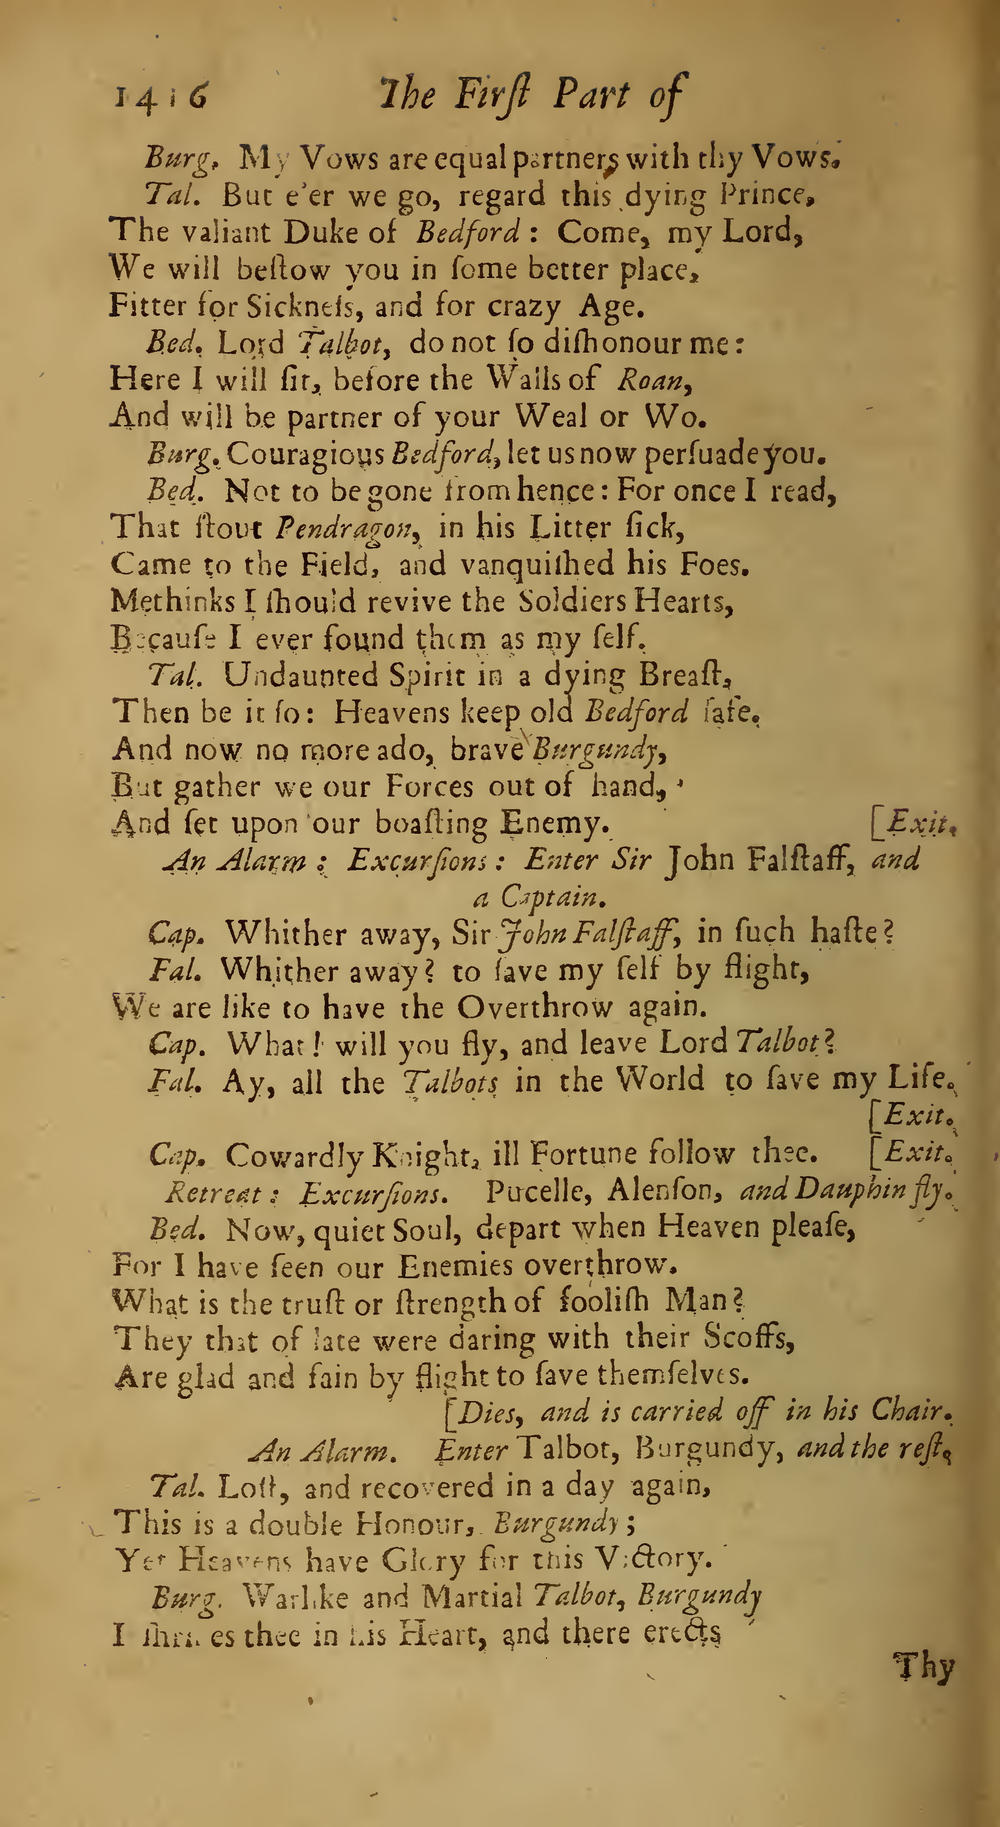 1416 The Firſt Part of
Burg. My Vows are equal partners with thy Vows.
Tal. But e'er we go, regard this dying Prince,
The valiant Duke of Bedford: Come, my Lord,
We will beſtow you in ſome better place,
Fitter for Sickneſs, and for crazy Age.
Bed. Lord Talbot, do not ſo diſhonour me:
Here I will ſit, before the Walls of Roan,
And will be partner of your Weal or Wo.
Burg. Couragious Bedford, let us now perſuade you.
Bed. Not to be gone from hence: For once I read,
That ſtout Pendragon, in his Litter ſick,
Came to the Field, and vanquiſhed his Foes.
Methinks I ſhould revive the Soldiers Hearts,
Becauſe I ever found them as my ſelf.
Tal. Undaunted Spirit in a dying Breaſt,
Then be it ſo: Heavens keep old Bedford ſafe.
And now no more ado, brave Burgundy,
But gather we our Forces out of hand,
And ſet upon our boaſting Enemy. [Exit.
An Alarm: Excurſions: Enter Sir John Falſtaff, and
a Captain.
Cap. Whither away, Sir John Falſtaff, in ſuch haſte?
Fal. Whither away? to ſave my ſelf by flight,
We are like to have the Overthrow again.
Cap. What! will you fly, and leave Lord Talbot?
Fal. Ay, all the Talbots in the World to ſave my Life.
[Exit.
Cap. Cowardly Knight, ill Fortune follow thee. [Exit.
Retreat: Excurſions. Pucelle, Alenſon, and Dauphin fly.
Bed. Now, quiet Soul, depart when Heaven pleaſe,
For I have ſeen our Enemies overthrow.
What is the truſt or ſtrength of fooliſh Man?
They that of late were daring with their Scoffs,
Are glad and fain by flight to ſave themſelves.
[Dies, and is carried off in his Chair.
An Alarm. Enter Talbot, Burgundy, and the reſt,
Tal. Loſt, and recovered in a day again,
This is a double Honour, Burgundy;
Yet Heavens have Glory for this Victory.
Burg. Warlike and Martial Talbot, Burgundy
I ſhrines thee in his Heart, and there erects
Thy